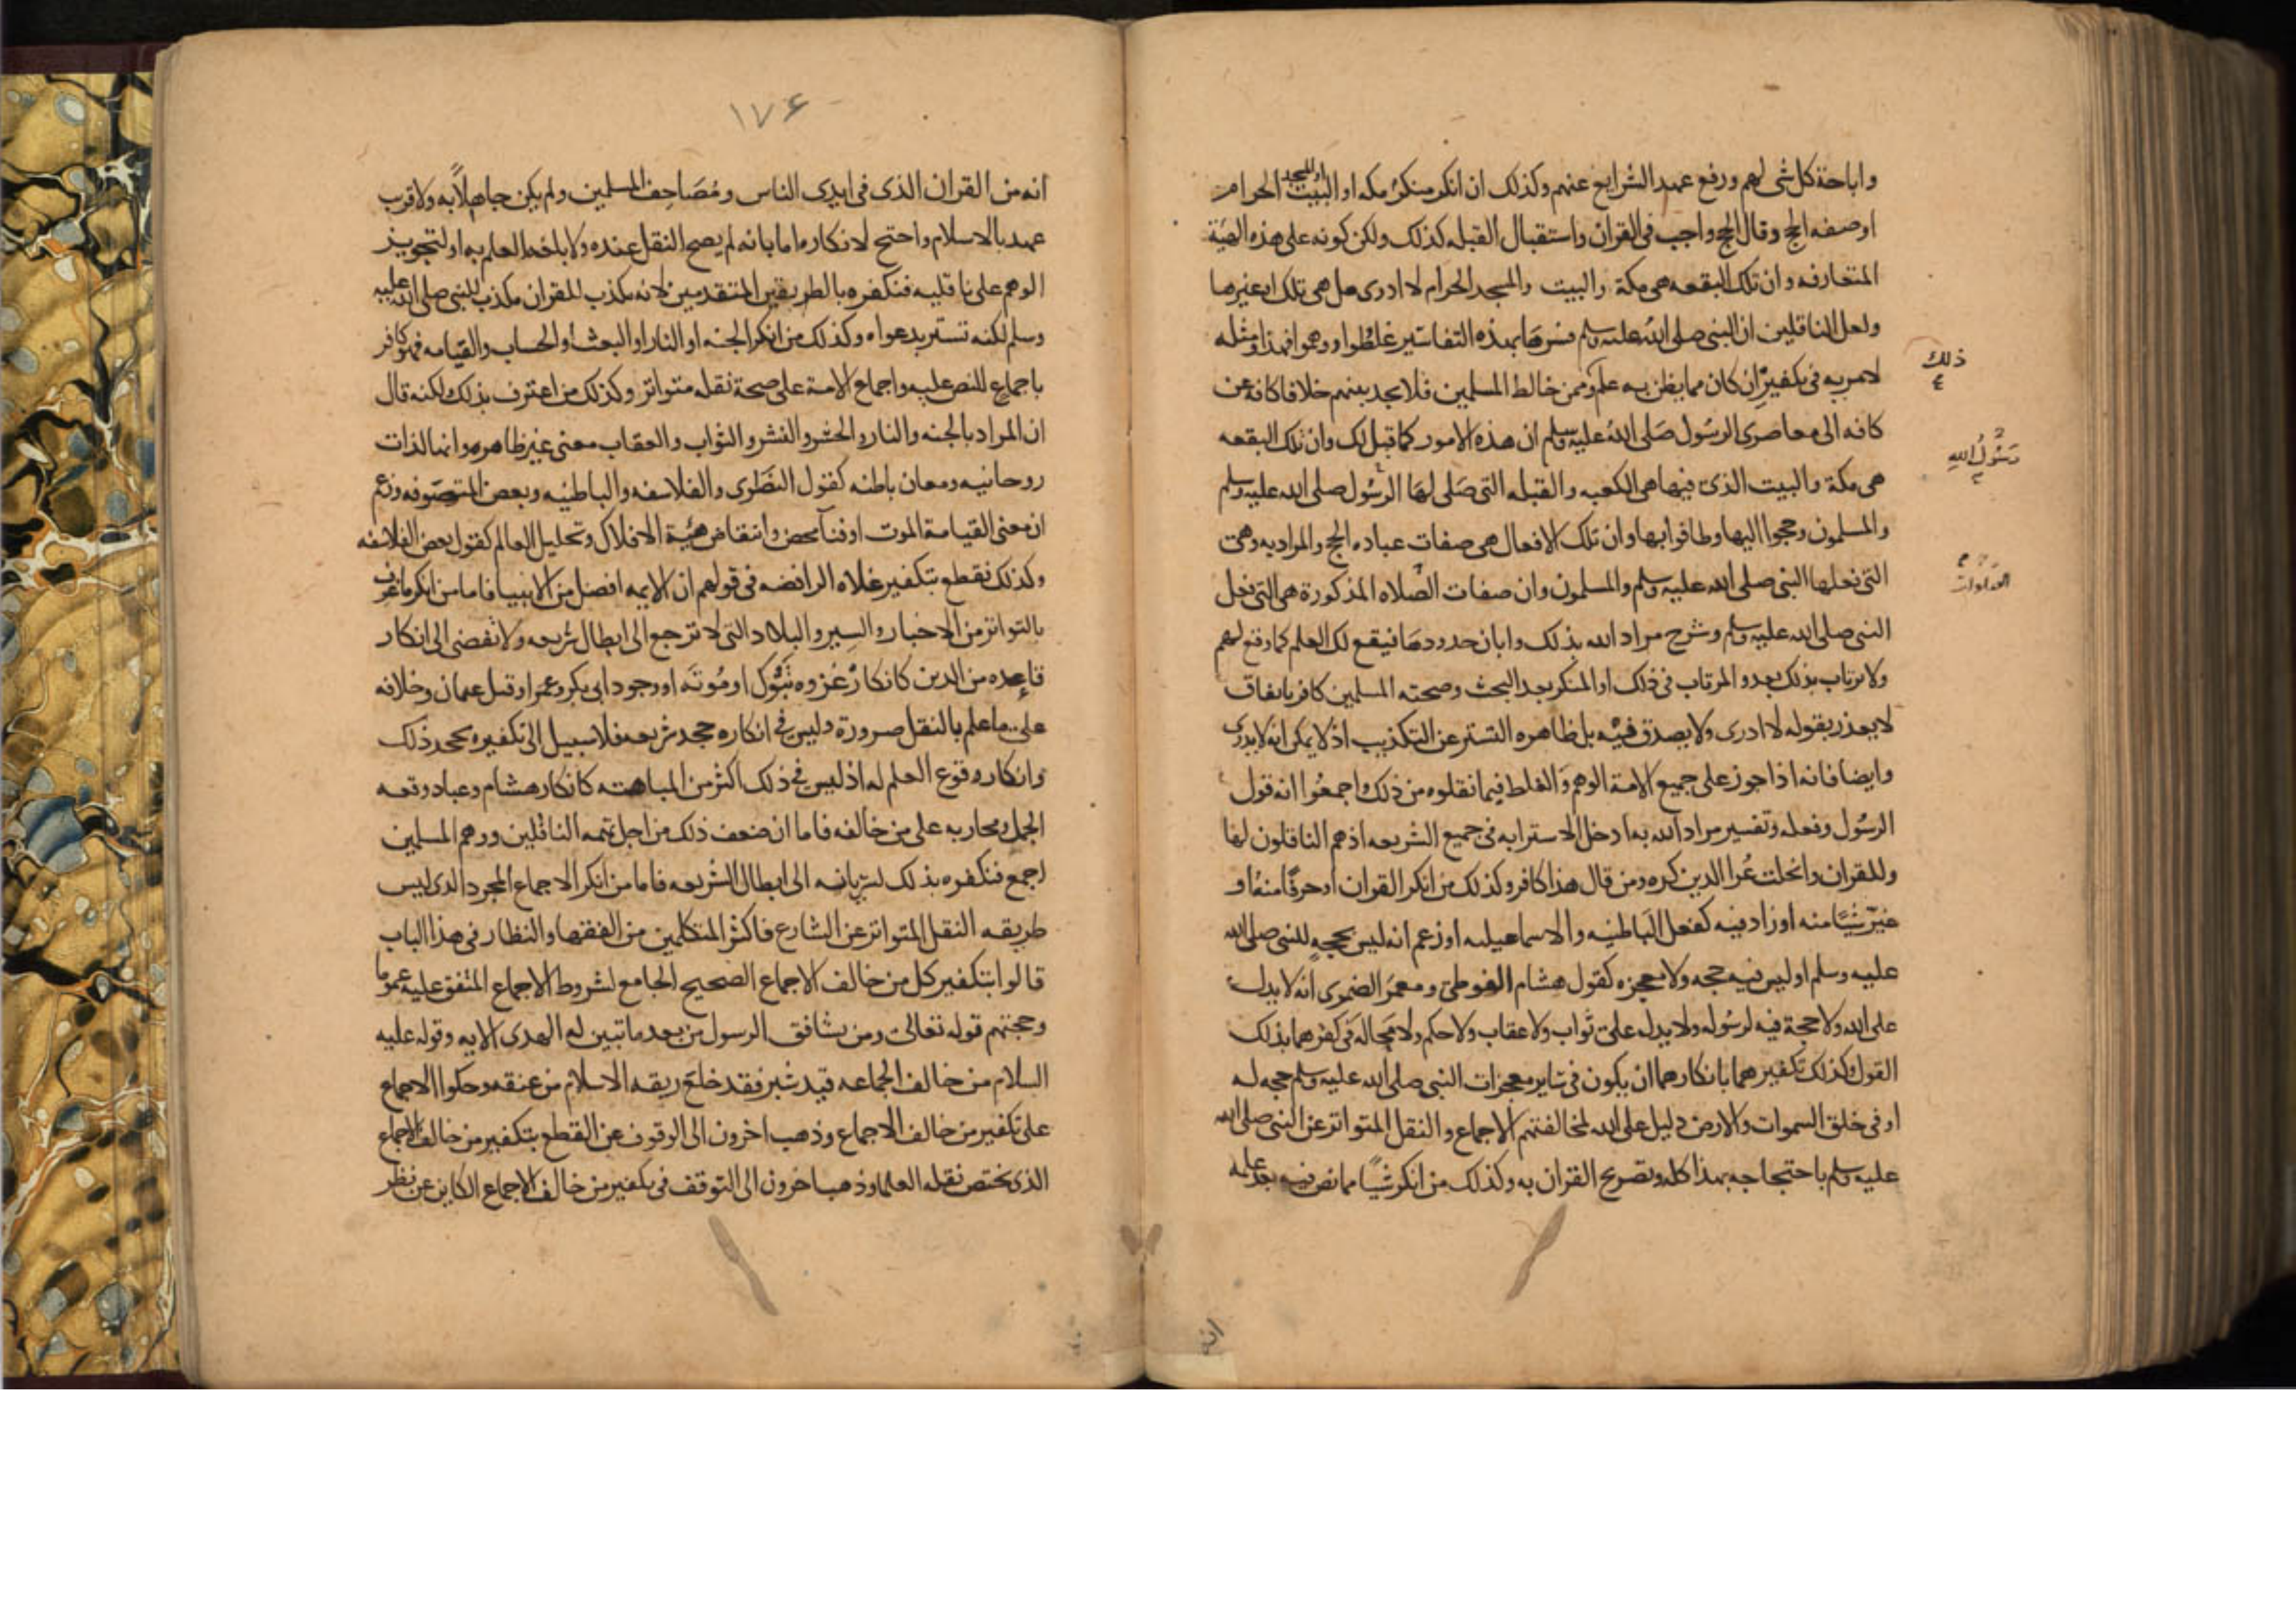 واباحة كل شى لهم ورفع عهد الشرايع عنهم وكذلك ان انكر منكر مكه او البيت او المسجد الحرام
او صفه الحج وقال الحج واجب فى القران واستقبال القبله كذلك ولكن كونه على هذه الهيئة
المتعارفه وان تلك البقعه هى مكة والبيت والمسجد الحرام لا ادرى هل هى تلك او غيرها
ولعل الناقلين ان النبى صلى الله عليه وسلم فسرها بهذه التفاسير غلطوا ووهموا فهذا ومثله
لا مريه فى تكفيره ان كان ممن يظن به علم ذلك وممن خالط المسلمين فلا يجد بينهم خلافا كافه عن
كافه الى معاصرى الرسول صلى الله عليه وسلم ان هذه الامور كما قيل لك وان تلك البقعه
هى مكة والبيت الذى فيها هى الكعبه والقبله التى صلى لها الرسول صلى الله عليه وسلم
والمسلمون وحجوا اليها وطافوا بها وان تلك الافعال هى صفات عباده الحج والمراد به وهى
التى فعلها النبى صلى الله عليه وسلم والمسلمون وان صفات الصلاه المذكورة هى التى فعل
النبى صلى الله عليه وسلم وشرح مراد الله بذلك وابان حدودها فيقع لك العلم كما وقع لهم
ولا ترتاب بذلك بعد والمرتاب فى ذلك او المنكر بعد البحث وصحبته المسلمين كافر باتفاق
لا يعذر بقوله لا ادرى ولا يصدق فيه بل ظاهره التستر عن التكذيب اذ لا يمكن انه لا يدرى
وايضا فانه اذا جوز على جميع الامة الوهم والغلط فيما نقلوه من ذلك واجمعوا انه قول
الرسول وفعله وتفسير مراد الله به ادخل الاسترابه فى جميع الشريعه اذ هم الناقلون لها
وللقران وانحلت عرا الدين كره ومن قال هذا كافر وكذلك من انكر القران او حرفا منه او
غير شيا منه او زاد فيه كفعل الباطنيه والاسماعيليه او زعم انه ليس بحجه للنبى صلى الله
عليه وسلم او ليس فيه حجه ولا معجزه كقول هشام الفوطى ومعمر الضمرى انه لا يدل
على الله ولا حجة فيه لرسوله ولا يدل على ثواب ولا عقاب ولا حكم ولا محاله فى كفرهما بذلك
القول وكذلك تكفيرهما بانكارهما ان يكون فى ساير معجزات النبى صلى الله عليه وسلم حجه له
او فى خلق السموات والارض دليل على الله لمخالفتهم الاجماع والنقل المتواتر عن النبى صلى الله
عليه وسلم باحتجاجه بهذا كله وتصريح القران به وكذلك من انكر شيا مما نص فيه بعد علمه
ذلك
رسول الله
انه
١٧۶
انه من القران الذى فى ايدى الناس ومصاحف المسلمين ولم يكن جاهلا به ولا قرب
عهد بالاسلام واحتج لانكاره اما بانه لم يصح النقل عنده ولا بلغه العلم به او لتجويز
الوهم على ناقليه فنكفره بالطريقين المتقدمين لانه مكذب للقران مكذب للنبى صلى الله عليه
وسلم لكنه تستر بدعواه وكذلك من انكر الجنه او النار او البعث او الحساب والقيامه فهو كافر
باجماع للنص عليه واجماع الامة على صحة نقله متواتر وكذلك من اعترف بذلك لكنه قال
ان المراد بالجنه والنار والحشر والنشر والثواب والعقاب معنى غير ظاهره وانها لذات
روحانيه ومعان باطنه كقول النصرى والفلاسفه والباطنيه وبعض المتصوفه وزعم
ان معنى القيامة الموت او فنآ محض وانتقاض هيئة الافلاك وتحليل العالم كقول بعض الفلاسفه
وكذلك نقطع بتكفير غلاه الرافضه فى قولهم ان الايمه افضل من الانبيا فاما من انكر ما عرف
بالتواتر من الاخبار والسير والبلاد التى لا ترجع الى ابطال شريعه ولا تفضى الى انكار
قاعده من الدين كانكار غزوه تبوك او موتة او وجود ابى بكر وعمر او قتل عثمان وخلافه
على مما علم بالنقل ضرورة وليس فى انكاره جحد شريعه فلا سبيل الى تكفيره بجحد ذلك
وانكار وقوع العلم له اذ ليس فى ذلك اكثر من المباهته كانكار هشام وعباد وقعه
الجمل ومحاربه على من خالفه فاما ان ضعف ذلك من اجل تهمه الناقلين ووهم المسلمين
اجمع فنكفره بذلك لسريانه الى ابطال الشريعه فاما من انكر الاجماع المجرد الذى ليس
طريقه النقل المتواتر عن الشارع فاكثر المتكلمين من الفقها والنظار فى هذا الباب
قالوا بتكفير كل من خالف الاجماع الصحيح الجامع لشروط الاجماع المتفق عليه عموما
وحجتهم قوله تعالى ومن يشاقق الرسول من بعد ما تبين له الهدى الايه وقوله عليه
السلام من خالف الجماعه قيد شبر فقد خلع ربقه الاسلام من عنقه وحكوا الاجماع
على تكفير من خالف الاجماع وذهب اخرون الى الوقوف عن القطع بتكفير من خالف الاجماع
الذى يختص نقله العلما وذهب اخرون الى التوقف فى تكفير من خالف الاجماع الكاين عن نظر